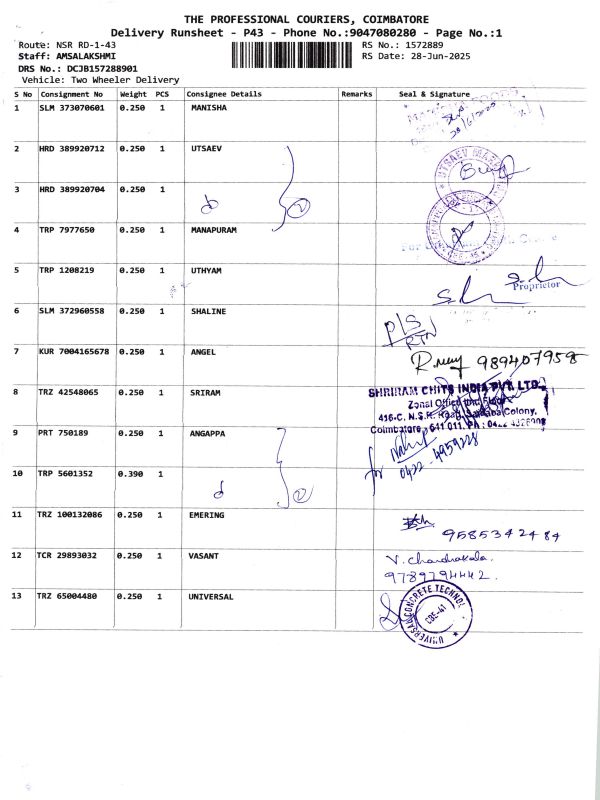 THE PROFESSIONAL COURIERS, COIMBATORE
Delivery Runsheet - P43 - Phone No.:9047080280 - Page No.:1
Route: NSR RD-1-43 RS No.: 1572889
Staff: AMSALAKSHMI RS Date: 28-Jun-2025
DRS No.: DCJB157288901
Vehicle: Two Wheeler Delivery
S No Consignment No Weight PCS Consignee Details Remarks Seal & Signature
1 SLM 373070601 0.250 1 MANISHA
2 HRD 389920712 0.250 1 UTSAEV
UTSAEV
3 HRD 389920704 0.250 1
2
4 TRP 7977650 0.250 1 MANAPURAM
5 TRP 1208219 0.250 1 UTHYAM
Proprietor
6 SLM 372960558 0.250 1 SHALINE
P/S
RTN
7 KUR 7004165678 0.250 1 ANGEL
989407958
8 TRZ 42548065 0.250 1 SRIRAM
SHRIRAM CHITS INDIA PVT. LTD.,
Zonal Office
416-C, N.S.R. Road, Saibaba Colony,
Coimbatore - 641 011.
9 PRT 750189 0.250 1 ANGAPPA
for
0422-4959228
10 TRP 5601352 0.390 1
2
11 TRZ 100132086 0.250 1 EMERING
9585342484
12 TCR 29893032 0.250 1 VASANT
V. Chandrakala.
9789794442.
13 TRZ 65004480 0.250 1 UNIVERSAL
UNIVERSAL CONCRETE TECHNOL
CBE-41